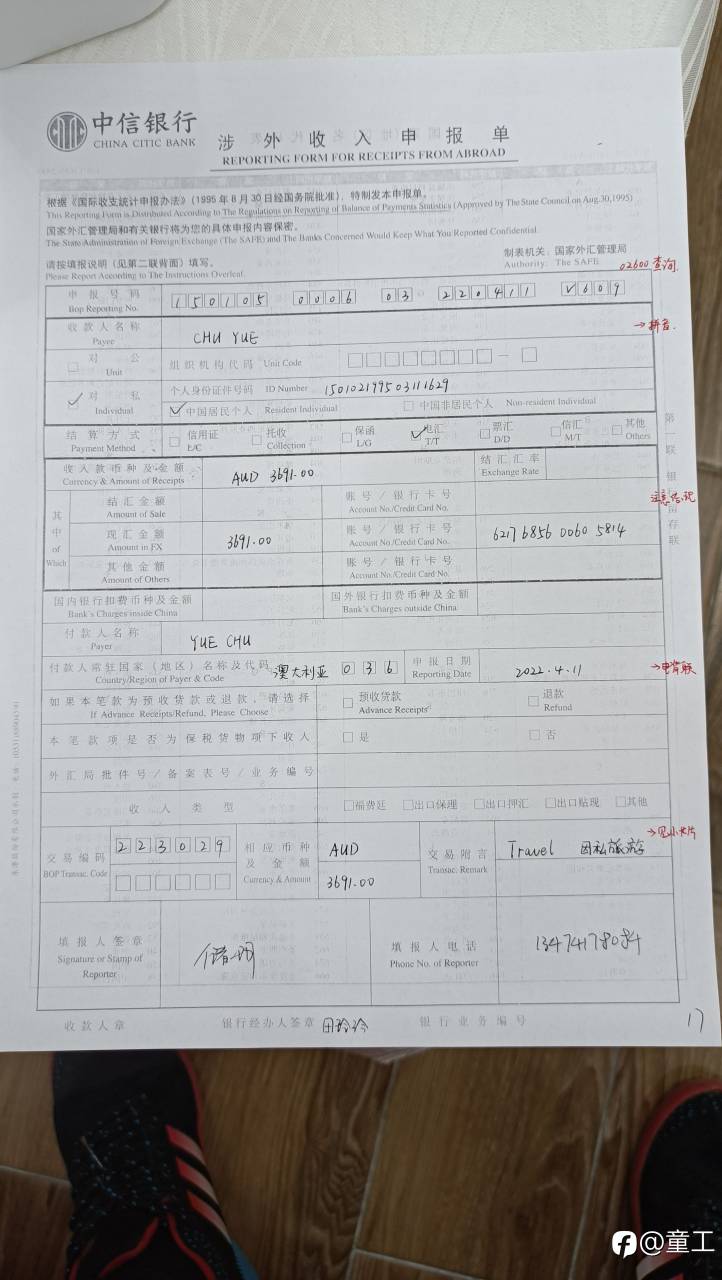 中信银行
CHINA CITIC BANK
涉外收入申报单
REPORTING FORM FOR RECEIPTS FROM ABROAD
根据《国际收支统计申报办法》(1995年8月30日经国务院批准),特制发本申报单。
This Reporting Form is Distributed According to The Regulations on Reporting of Balance of Payments Statistics (Approved by The State Council on Aug.30,1995)
国家外汇管理局和有关银行将为您的具体申报内容保密。
The State Administration of Foreign Exchange (The SAFE) and The Banks Concerned Would Keep What You Reported Confidential.
请按填报说明(见第二联背面)填写。 制表机关:国家外汇管理局
Please Report According to The Instructions Overleaf. Authority: The SAFE
02600 查询
申报号码 150105 0006 03 220411 V609
Bop Reporting No.
收款人名称 CHU YUE →拼音
Payee
对公 组织机构代码 Unit Code
Unit
对私 个人身份证件号码 ID Number 150102199503111629
Individual 中国居民个人 Resident Individual 中国非居民个人 Non-resident Individual
结算方式 信用证 托收 保函 电汇 票汇 信汇 其他
Payment Method L/C Collection L/G T/T D/D M/T Others
收入款币种及金额 AUD 3691.00 结汇汇率
Currency & Amount of Receipts Exchange Rate
其中 of Which
结汇金额 账号/银行卡号
Amount of Sale Account No./Credit Card No.
现汇金额 3691.00 账号/银行卡号 6217 6856 0060 5814
Amount in FX Account No./Credit Card No.
其他金额 账号/银行卡号
Amount of Others Account No./Credit Card No.
国内银行扣费币种及金额 国外银行扣费币种及金额
Bank's Charges inside China Bank's Charges outside China
付款人名称 YUE CHU
Payer
付款人常驻国家(地区)名称及代码 澳大利亚 036 申报日期 2022.4.11
Country/Region of Payer & Code Reporting Date
如果本笔款为预收货款或退款,请选择 预收货款 退款
If Advance Receipts/Refund, Please Choose Advance Receipts Refund
本笔款项是否为保税货物项下收入 是 否
外汇局批件号/备案表号/业务编号
收入类型 福费廷 出口保理 出口押汇 出口贴现 其他
交易编码 223029 相应币种及金额 AUD 交易附言 Travel 因私旅游 →见小卡片
BOP Transac. Code Currency & Amount 3691.00 Transac. Remark
填报人签章 储玥 填报人电话 13474178084
Signature or Stamp of Reporter Phone No. of Reporter
收款人章 银行经办人签章 田玲玲 银行业务编号
17
@童工